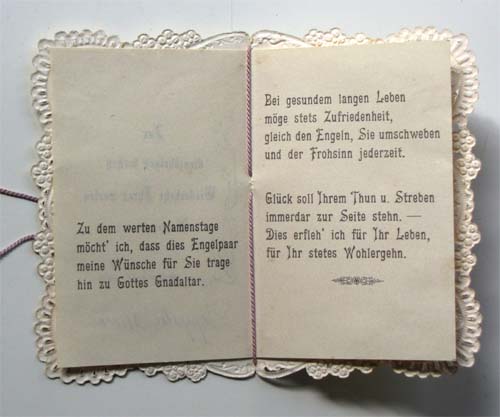 Zu dem werten Namenstage
möcht' ich, dass dies Engelpaar
meine Wünsche für Sie trage
hin zu Gottes Gnadaltar.
Bei gesundem langen Leben
möge stets Zufriedenheit,
gleich den Engeln, Sie umschweben
und der Frohsinn jederzeit.
Glück soll Ihrem Thun u. Streben
immerdar zur Seite stehn. —
Dies erfleh' ich für Ihr Leben,
für Ihr stetes Wohlergehn.